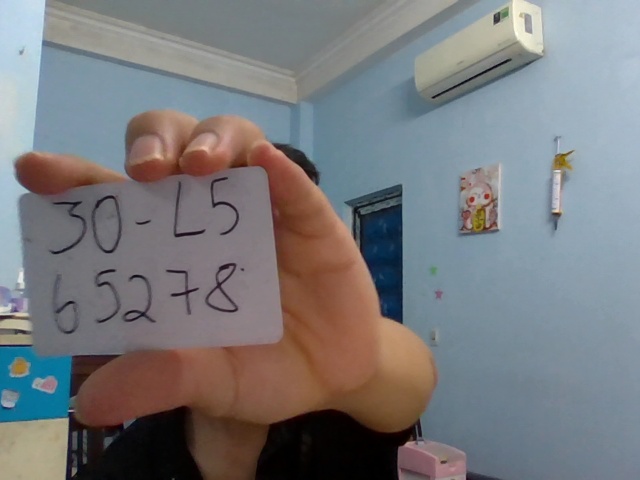 30-L5
65278